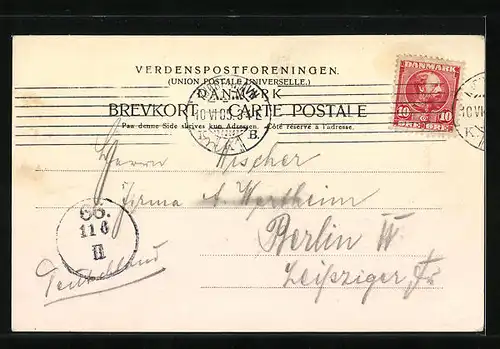 VERDENSPOSTFORENINGEN.
(UNION POSTALE UNIVERSELLE.)
DANMARK
BREVKORT - CARTE POSTALE
Paa denne Side skrives kun Adressen. - Côté réservé à l'adresse.
DANMARK
10 10
ØRE ØRE
B.
Herrn Fischer
Firma A. Wertheim
Berlin W
Leipziger
66.
11 6
II